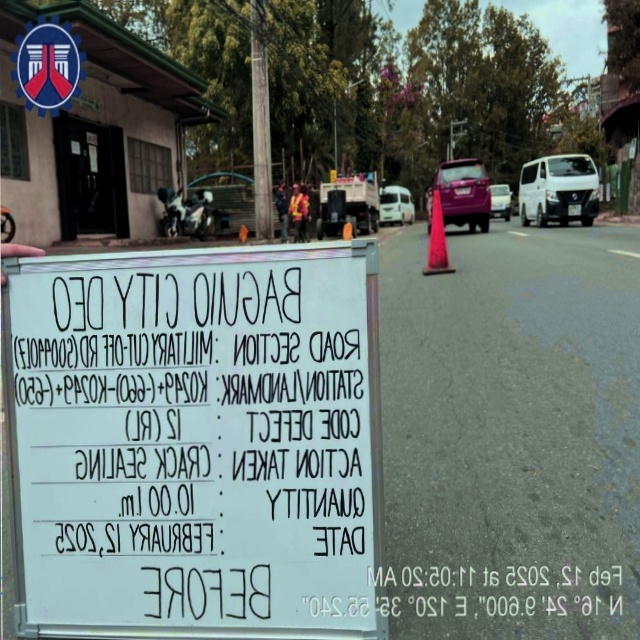 BAGUIO CITY DEO
ROAD SECTION : MILITARY CUT-OFF RD (S00440LZ)
STATION/LANDMARK: K0249+(-660)-K0249+(-650)
CODE DEFECT : 12 (RL)
ACTION TAKEN : CRACK SEALING
QUANTITY : 10.00 l.m.
DATE : FEBRUARY 12, 2025
BEFORE
Feb 12, 2025 at 11:05:20 AM
N 16° 24' 9.600", E 120° 35' 55.240"